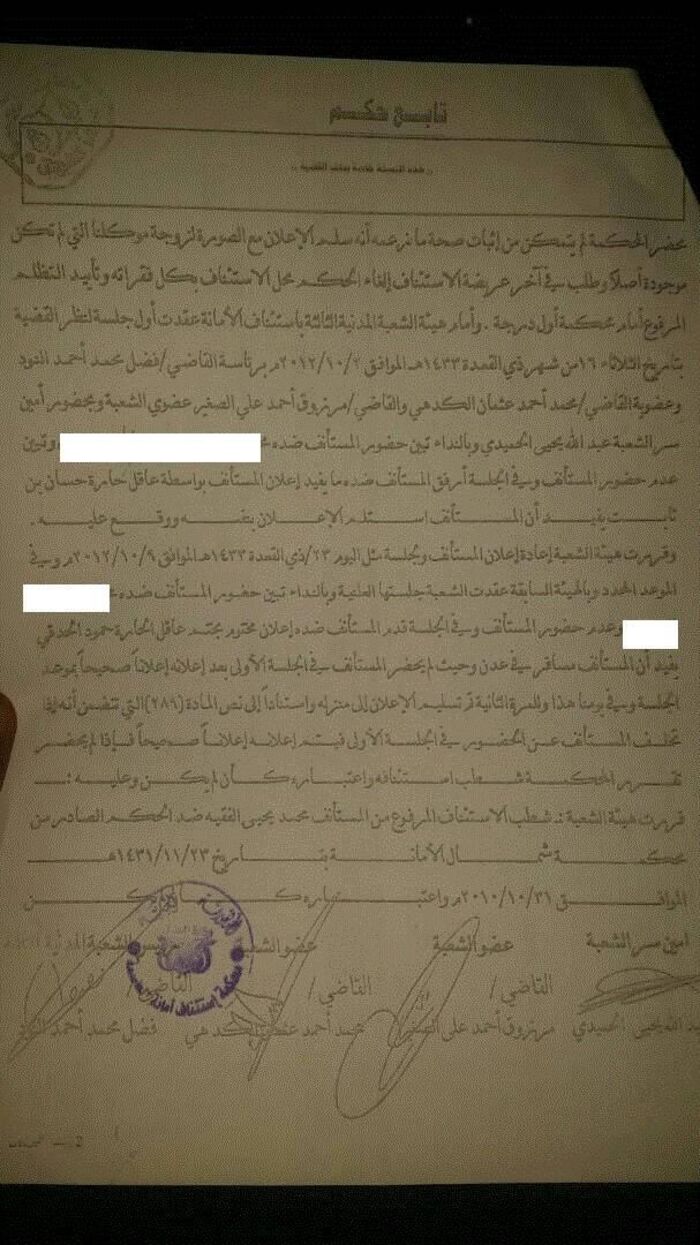 تابع حكم
,, هذه النسخة خاصة بملف القضية ,,
محضر المحكمة لم يتمكن من إثبات صحة ما زعمه أنه سلم الإعلان مع الصورة لزوجة موكلنا التي لم تكن
موجودة أصلاً وطلب في آخر عريضة الاستئناف إلغاء الحكم محل الاستئناف بكل فقراته وتأييد التظلم
المرفوع أمام محكمة أول درجة . وأمام هيئة الشعبة المدنية الثالثة باستئناف الأمانة عقدت أول جلسة لنظر القضية
بتاريخ الثلاثاء ١٦ من شهر ذي القعدة ١٤٣٣هـ الموافق ٢/١٠/٢٠١٢م برئاسة القاضي/ فضل محمد أحمد النود
وعضوية القاضي/ محمد أحمد عثمان الكدهي والقاضي/ مرزوق أحمد علي الصغير عضوي الشعبة وبحضور أمين
سر الشعبة عبد الله يحيى الحميدي وبالنداء تبين حضور المستأنف ضده وتبين
عدم حضور المستأنف وفي الجلسة أرفق المستأنف ضده ما يفيد إعلان المستأنف بواسطة عاقل حارة حسان بن
ثابت يفيد أن المستأنف استلم الإعلان بنفسه ووقع عليه .
وقررت هيئة الشعبة إعادة إعلان المستأنف وبجلسة مثل اليوم ٢٣/ذي القعدة ١٤٣٣هـ الموافق ٩/١٠/٢٠١٢م وفي
الموعد المحدد وبالهيئة السابقة عقدت الشعبة جلستها العلنية وبالنداء تبين حضور المستأنف ضده
وعدم حضور المستأنف وفي الجلسة قدم المستأنف ضده إعلان مختوم بختم عاقل الحارة حمود الحدقي
يفيد أن المستأنف مسافر في عدن وحيث لم يحضر المستأنف في الجلسة الأولى بعد إعلانه إعلاناً صحيحاً بموعد
الجلسة وفي يومنا هذا وللمرة الثانية تم تسليم الإعلان إلى منزله واستناداً إلى نص المادة (٢٨٩) التي تتضمن أنه إذا
تخلف المستأنف عن الحضور في الجلسة الأولى فيتم إعلانه إعلاناً صحيحاً فإذا لم يحضر
تقرر المحكمة شطب استئنافه واعتباره كأن لم يكن وعليه :ـ
قررت هيئة الشعبة :ـ شطب الاستئناف المرفوع من المستأنف محمد يحيى الفقيه ضد الحكم الصادر من
محكمة شمال الأمانة بتاريخ ٢٣/١١/١٤٣١هـ
الموافق ٣١/١٠/٢٠١٠م واعتباره كأن لم يكن
أمين سر الشعبة عضو الشعبة عضو الشعبة رئيس الشعبة المدنية
القاضي/ القاضي/ القاضي/
الله يحيى الحميدي مرزوق أحمد علي الصغير محمد أحمد عثمان الكدهي فضل محمد أحمد النود
2